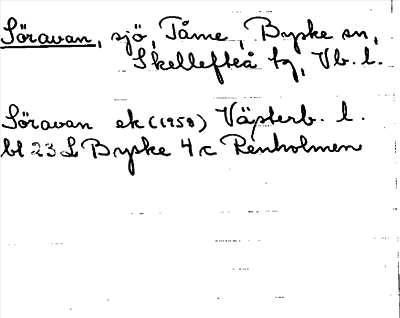 Söravan, sjö, Tåme, Byske sn,
Skellefteå tg, Vb. l.
Söravan ek (1958) Västerb. l.
bl 23 L Byske 4 c Renholmen